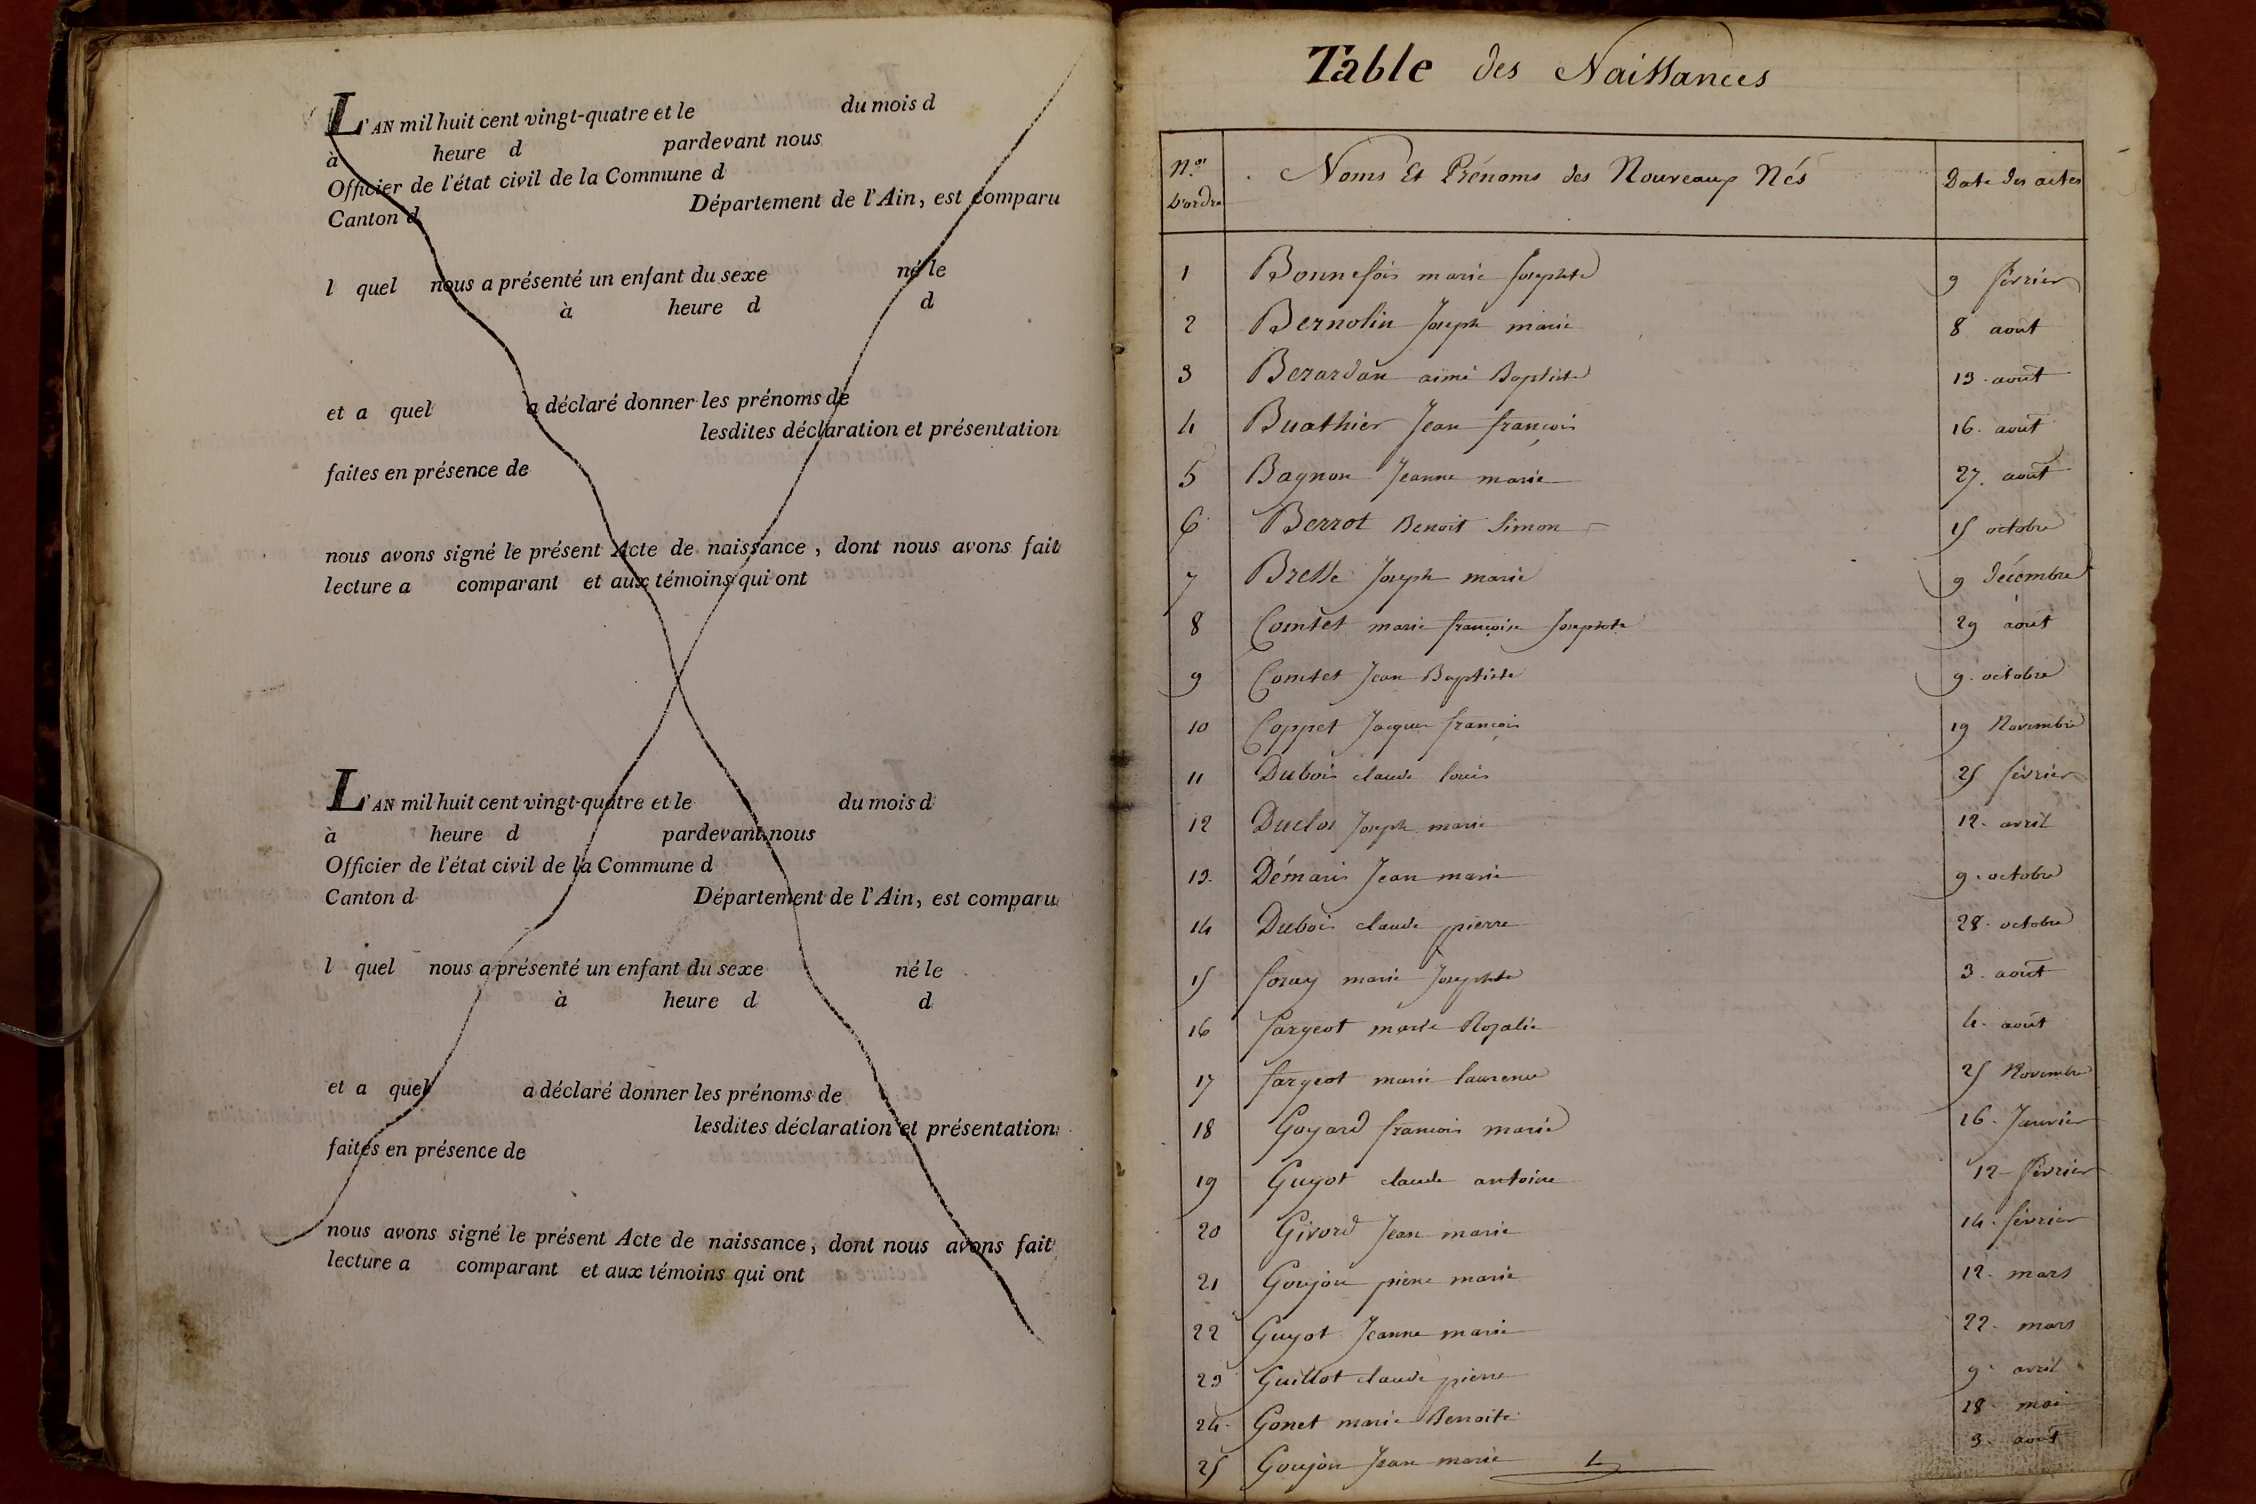 L'AN mil huit cent vingt-quatre et le du mois d
à heure d pardevant nous
Officier de l'état civil de la Commune d
Canton d Département de l'Ain, est comparu
l quel nous a présenté un enfant du sexe né le
à heure d d
et a quel a déclaré donner les prénoms de
lesdites déclaration et présentation
faites en présence de
nous avons signé le présent Acte de naissance, dont nous avons fait
lecture a comparant et aux témoins qui ont
L'AN mil huit cent vingt-quatre et le du mois d
à heure d pardevant nous
Officier de l'état civil de la Commune d
Canton d Département de l'Ain, est comparu
l quel nous a présenté un enfant du sexe né le
à heure d d
et a quel a déclaré donner les prénoms de
lesdites déclaration et présentation
faites en présence de
nous avons signé le présent Acte de naissance, dont nous avons fait
lecture a comparant et aux témoins qui ont
Table des Naissances
N.os d'ordre Noms Et Prénoms des Nouveaux Nés Date des actes
1 Bonnefois marie Josephte 9 février
2 Bernolin Joseph marie 8 août
3 Berardan aimé Baptiste 13. août
4 Buathier Jean françois 16. août
5 Bagnon Jeanne marie 27. août
6 Berrot Benoit Simon 15 octobre
7 Bresse Joseph marie 9 décembre
8 Comtet marie françoise Josephte 29 août
9 Comtet Jean Baptiste 9. octobre
10 Coppet Jacques françois 19 Novembre
11 Dubois claude louis 25 février
12 Duclos Joseph marie 12. avril
13. Démaris Jean marie 9. octobre
14 Dubois claude pierre 28. octobre
15 foray marie Josephte 3. août
16 fargeot marie Rozalie 4. août
17 fargeot marie laurence 25 Novembre
18 Goyard françois marie 16. Janvier
19 Guyot claude antoine 12 février
20 Givord Jean marie 14. février
21 Goujon pierre marie 12. mars
22 Guyot Jeanne marie 22. mars
23 Guillot claude pierre 9. avril
24. Gonet marie Benoite 18 mai
25 Goujon Jean marie 3. août